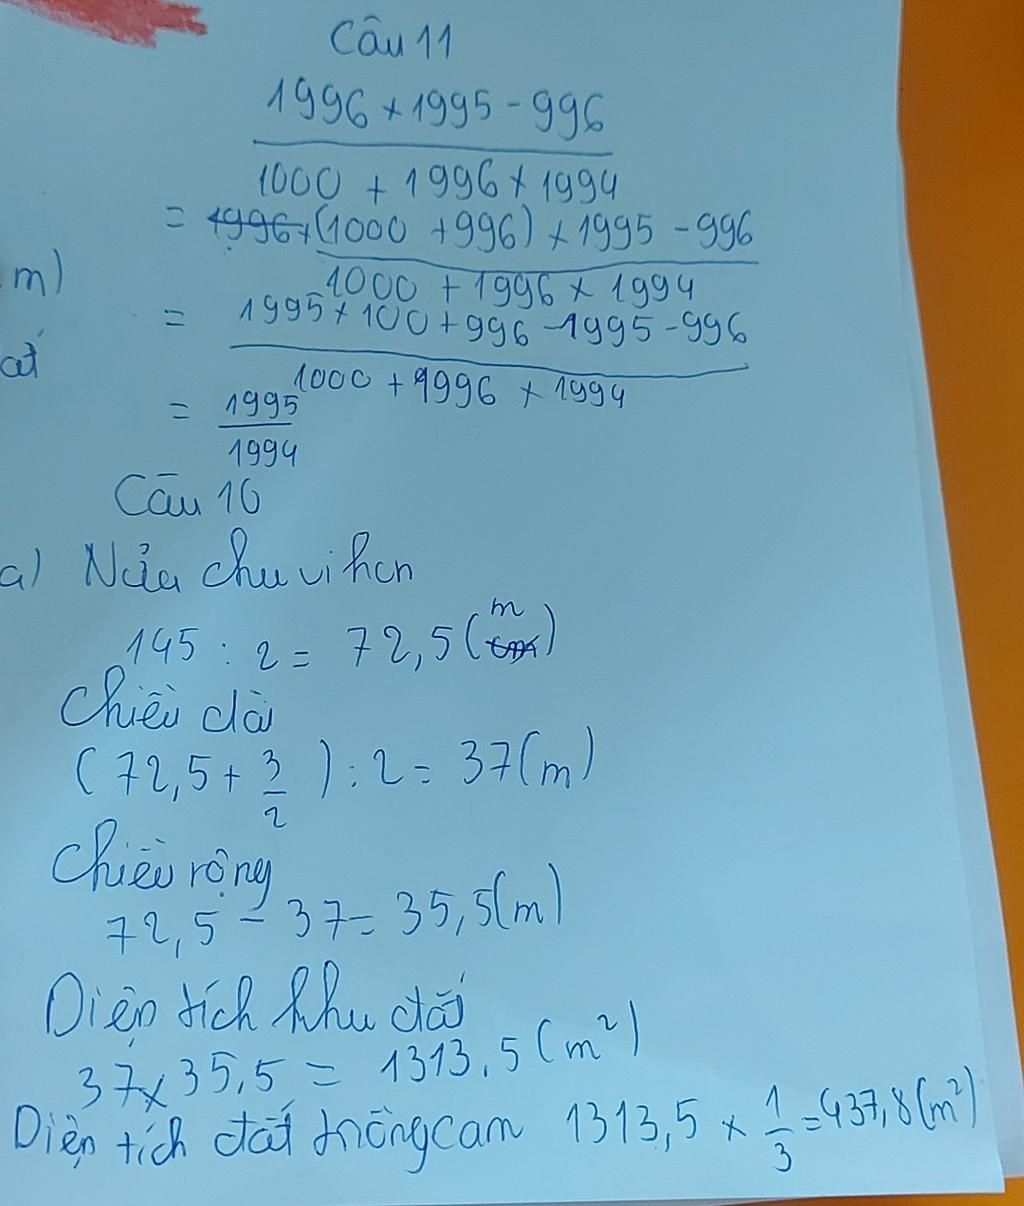 Câu 11
1996 x 1995 - 996
1000 + 1996 x 1994
= 1996 x (1000 + 996) x 1995 - 996
1000 + 1996 x 1994
m)
= 1995 x 100 + 996 - 1995 - 996
1000 + 1996 x 1994
at
= 1995
1994
Câu 10
a) Nửa chu vi hcn
145 : 2 = 72,5 (m)
Chiều dài
(72,5 + 3/2) : 2 = 37 (m)
Chiều rộng
72,5 - 37 = 35,5 (m)
Diện tích khu đất
37 x 35,5 = 1313,5 (m²)
Diện tích đất trồng cam 1313,5 x 1/3 = 437,8 (m²)